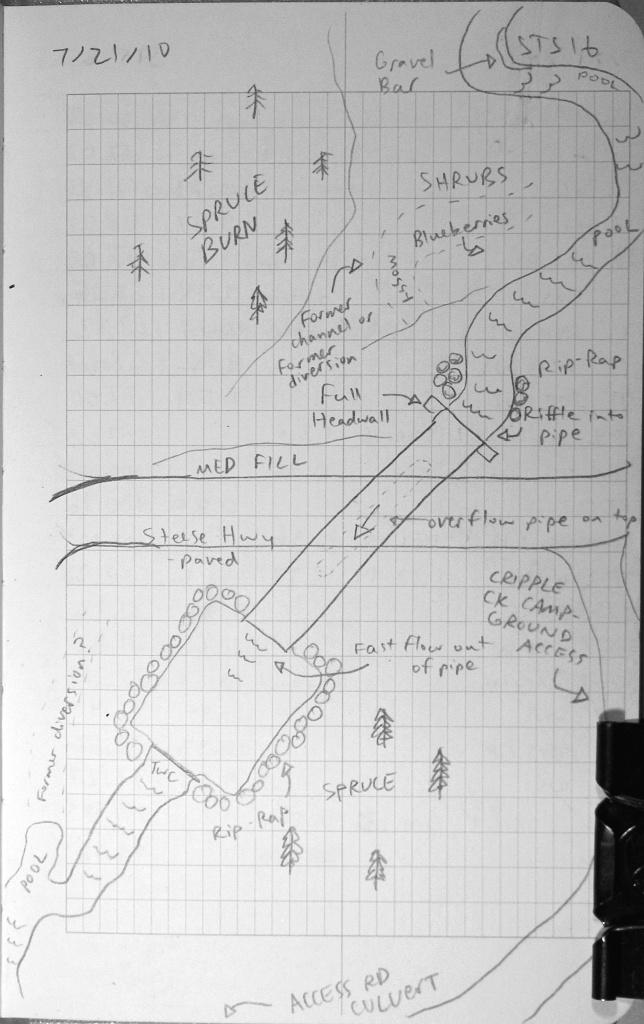 7/21/10
STS16
Gravel
Bar
POOL
SPRUCE
BURN
SHRUBS
Blueberries
mossy
POOL
Former
channel or
Former
diversion
Full
Headwall
Rip-Rap
Riffle into
pipe
MED FILL
overflow pipe on top
Steese Hwy
-paved
CRIPPLE
CK CAMP-
GROUND
ACCESS
Fast flow out
of pipe
Former diversion?
TWC
SPRUCE
Rip-Rap
POOL
ACCESS RD
CULVERT